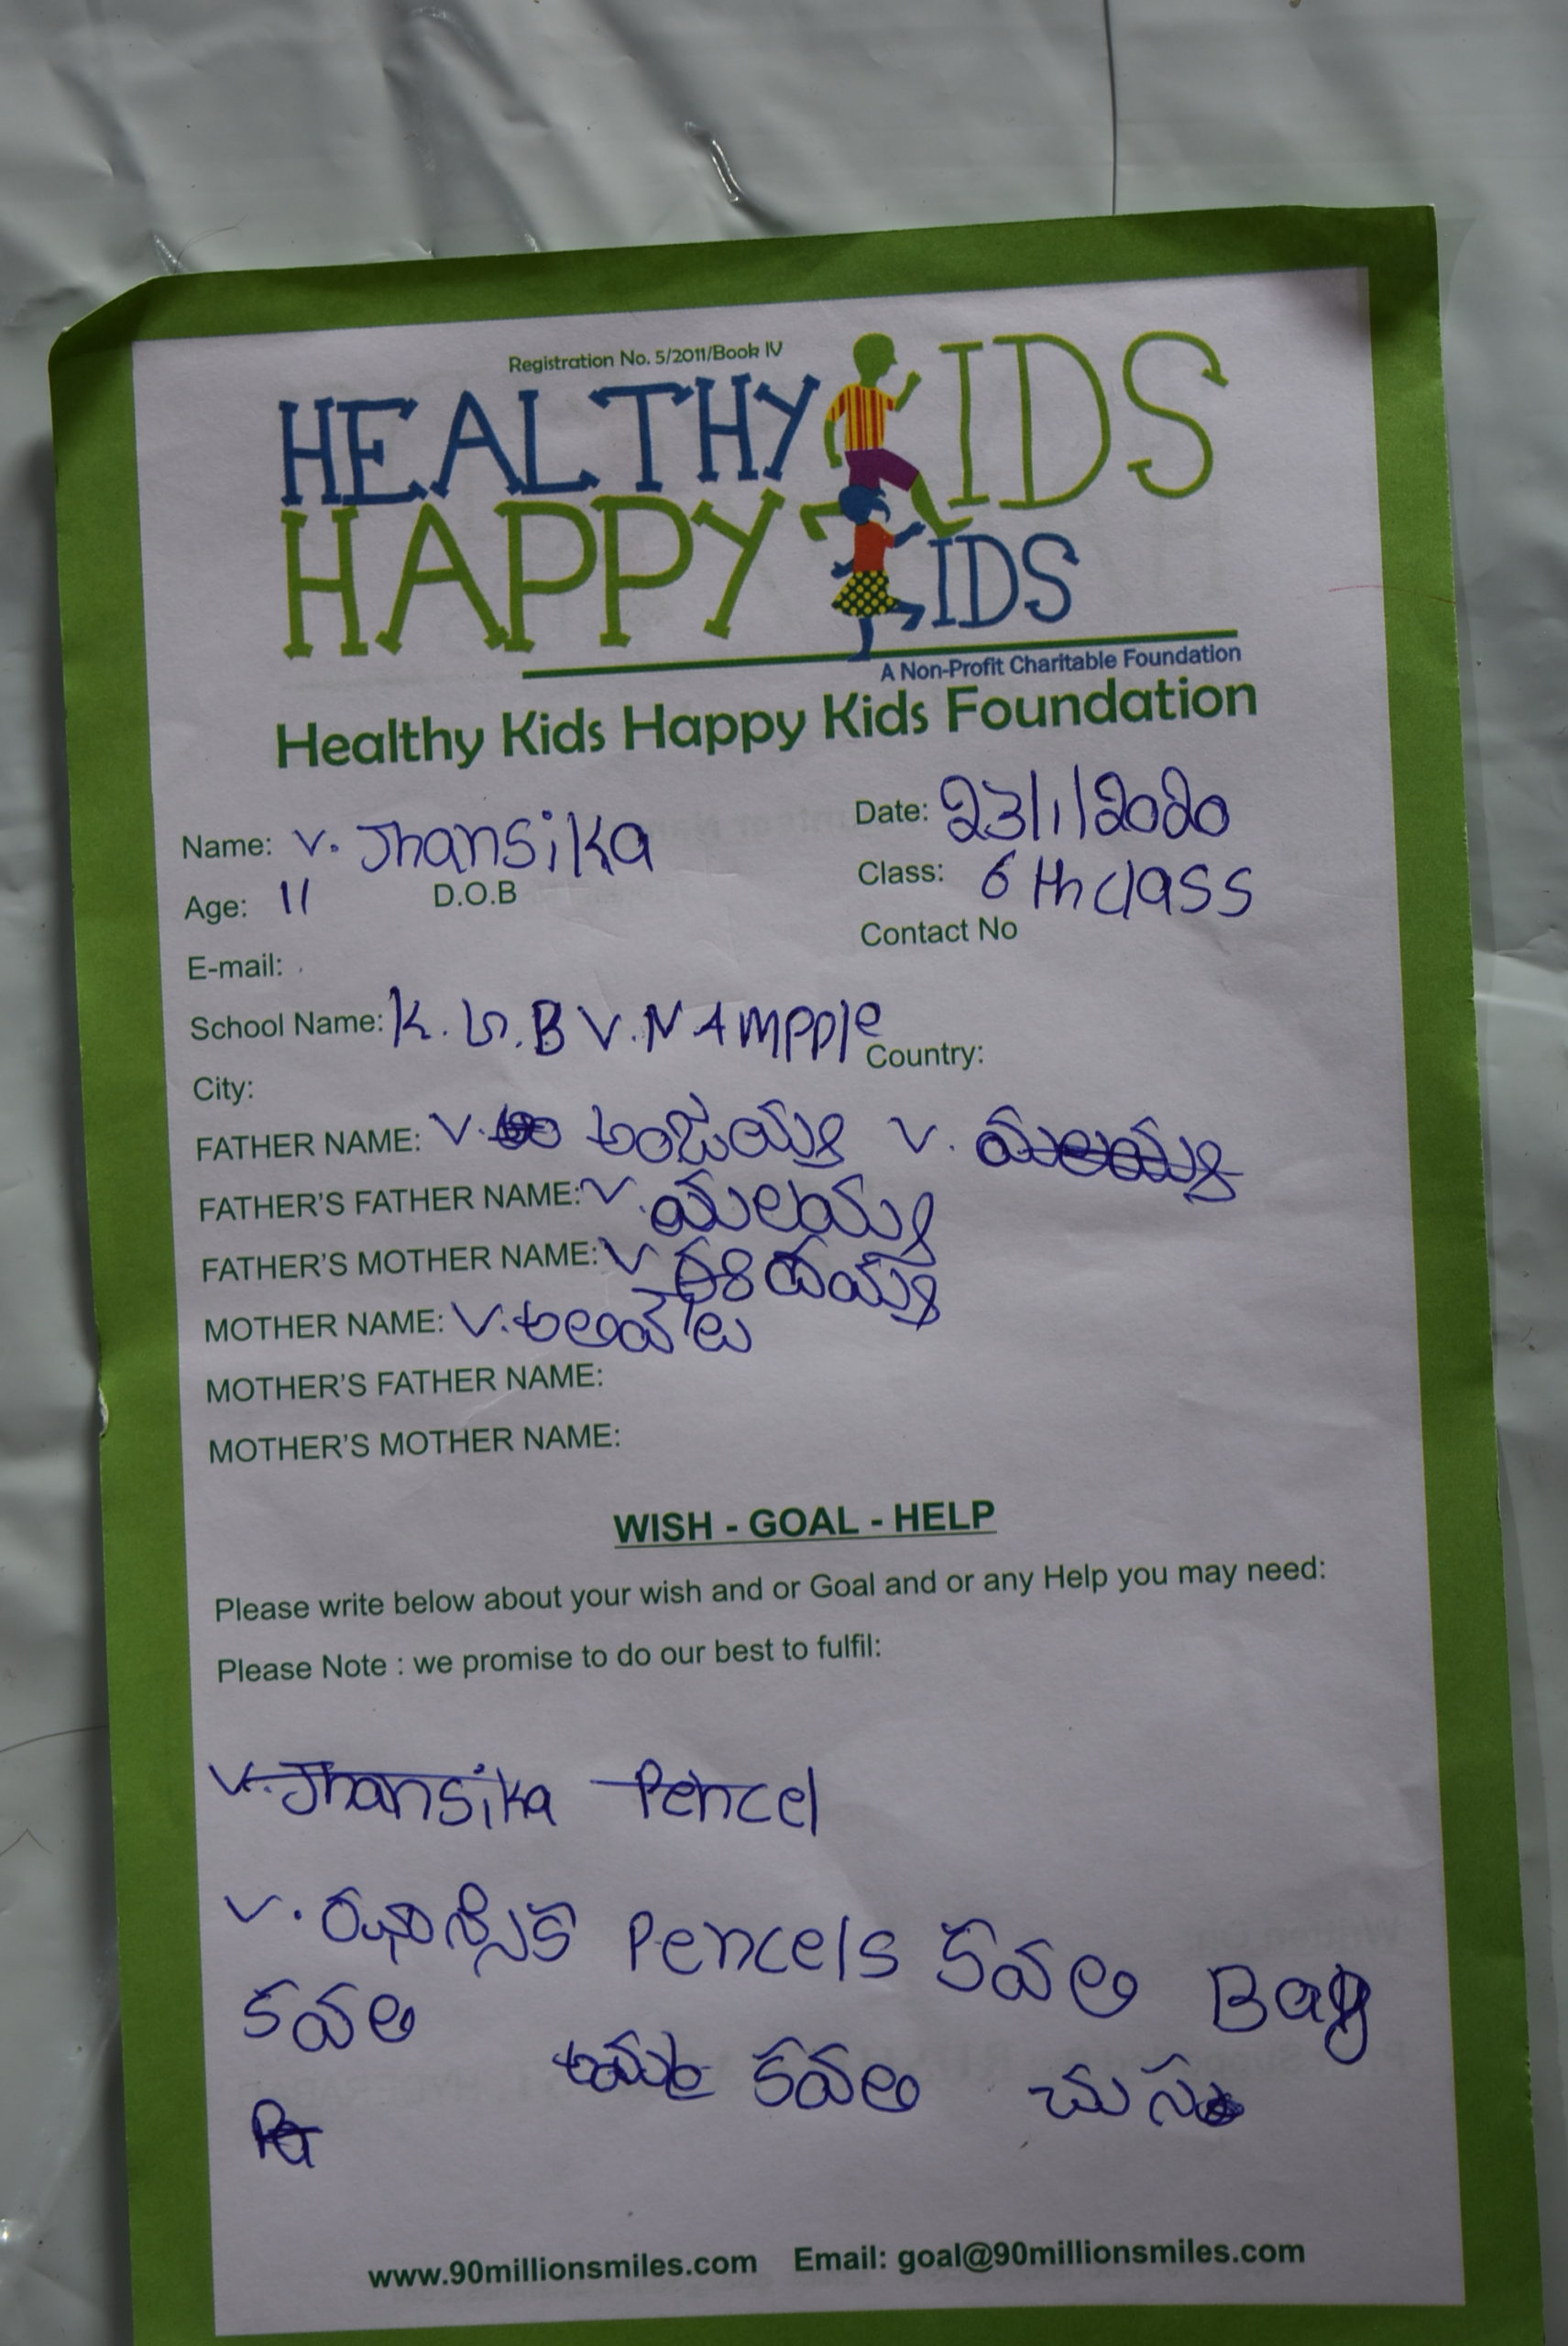 Registration No. 5/2011/Book IV
HEALTHY KIDS
HAPPY KIDS
A Non-Profit Charitable Foundation
Healthy Kids Happy Kids Foundation
Name: V. Jhansika Date: 23/1/2020
Age: 11 D.O.B Class: 6th class
Contact No
E-mail:
School Name: K.G.B V. NAMPPle
City: Country:
FATHER NAME: V. అంజయ్య V.
FATHER'S FATHER NAME: V. మలయ్య
FATHER'S MOTHER NAME: V
MOTHER NAME: V.
MOTHER'S FATHER NAME:
MOTHER'S MOTHER NAME:
WISH - GOAL - HELP
Please write below about your wish and or Goal and or any Help you may need:
Please Note : we promise to do our best to fulfil:
V. Jhansika Pencel
V. ఝాన్సిక Pencels కవలి Bag
కవలి
కవలి
www.90millionsmiles.com Email: goal@90millionsmiles.com